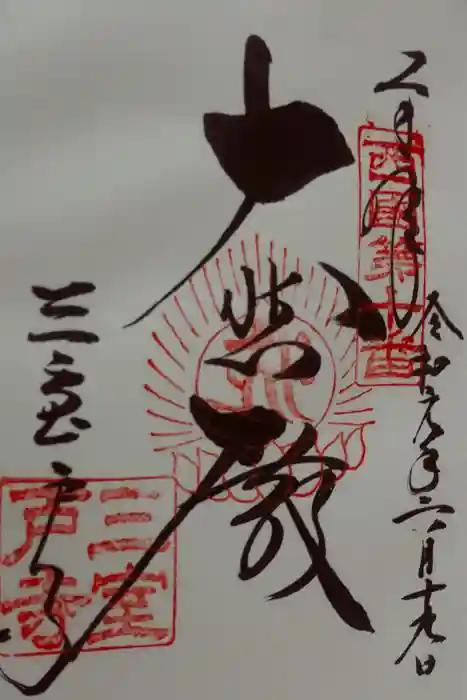 西國第十番
令和元年六月十九日
大悲殿
三室戸寺
三室
戸寺